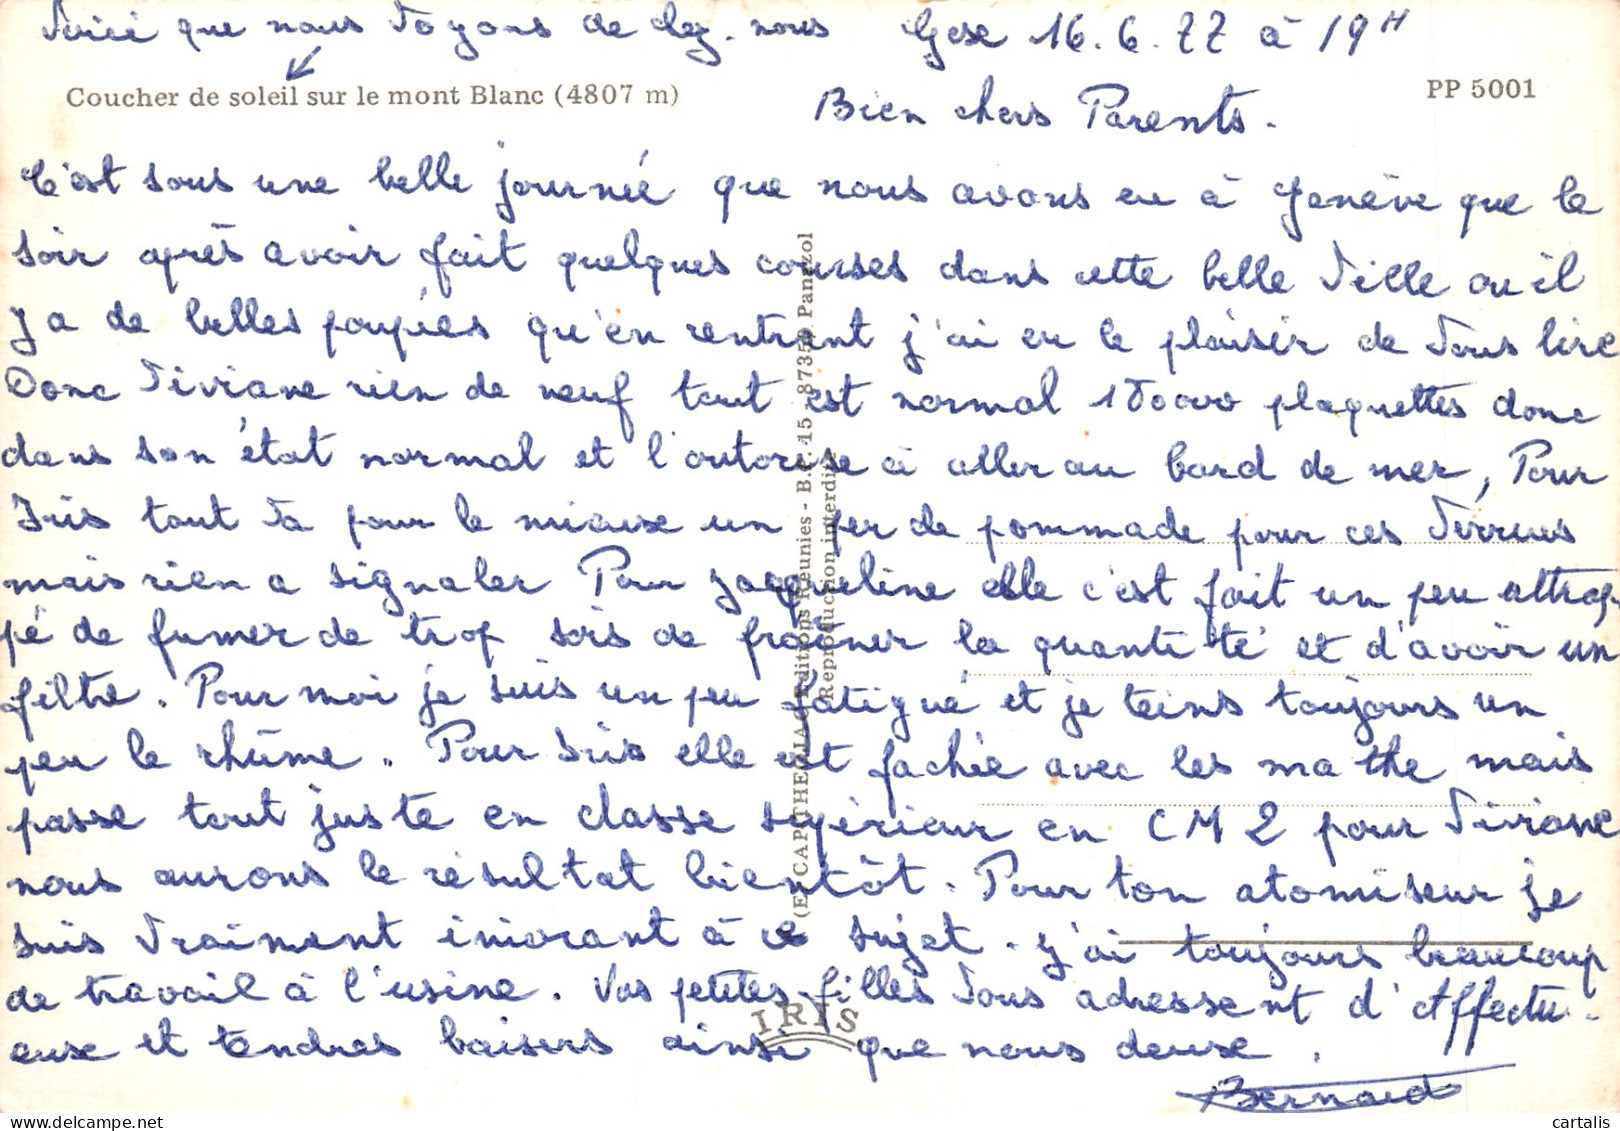 Voici que nous voyons de chez-nous Gex 16.6.77 à 19H
Coucher de soleil sur le mont Blanc (4807 m)
PP 5001
Bien chers Parents.
C'est sous une belle journée que nous avons eu à Genève que le
soir après avoir fait quelques courses dans cette belle ville ou il
y a de belles poupées qu'en rentrant j'ai eu le plaisir de vous lire
Donc Viviane rien de neuf tout est normal plaquettes donc
dans son état normal et l'autorise à aller au bord de mer, Pour
Iris tout va pour le mieux un peu de pommade pour ces verrues
mais rien a signaler Pour Jacqueline elle c'est fait un peu attrap-
pé de fumer de trop sois de freiner la quantité et d'avoir un
filtre. Pour moi je suis un peu fatigué et je teins toujours un
peu le rhûme. Pour Iris elle est fachée avec les mathe mais
passe tout juste en classe supérieur en CM2 pour Viviane
nous aurons le résultat bientôt. Pour ton atomiseur je
suis vraiment iniorant à ce sujet. J'ai toujours beaucoup
de travail à l'usine. Vos petites filles vous adressent d'affectu-
euse et tendres baisers ainsi que nous deuxe.
Bernard
Editions Réunies - B.P. 15 - 87350 Panazol
Reproduction interdite
IRIS
cartalis
www.delcampe.net